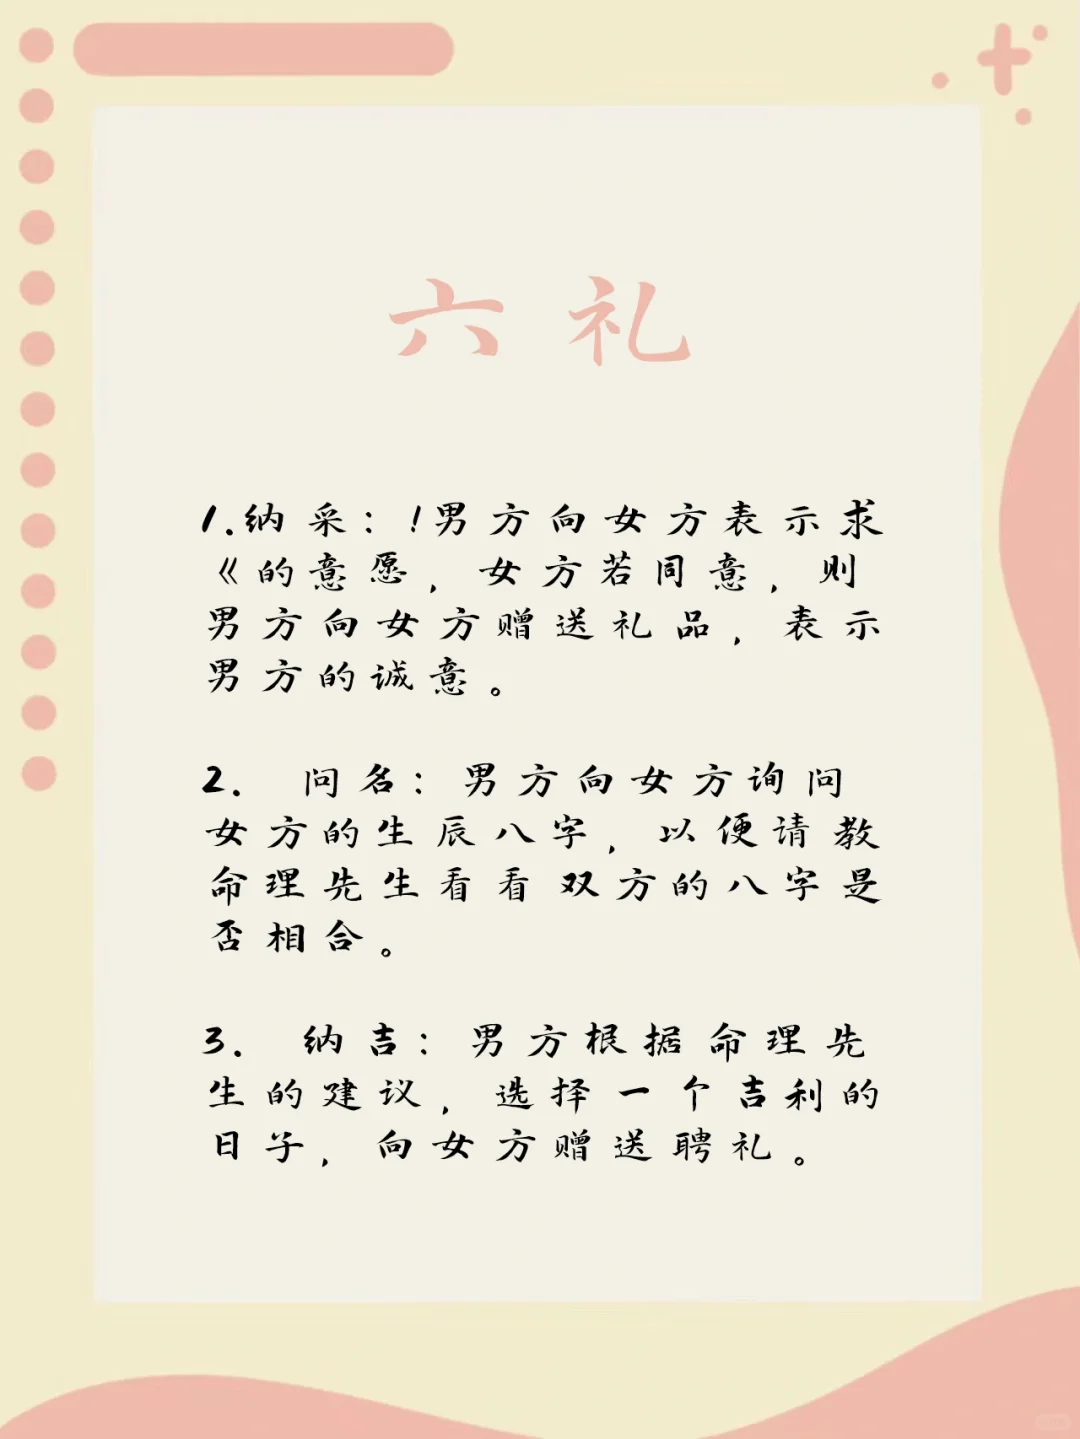 六礼
1.纳采：!男方向女方表示求
《的意愿，女方若同意，则
男方向女方赠送礼品，表示
男方的诚意。
2. 问名：男方向女方询问
女方的生辰八字，以便请教
命理先生看看双方的八字是
否相合。
3. 纳吉：男方根据命理先
生的建议，选择一个吉利的
日子，向女方赠送聘礼。